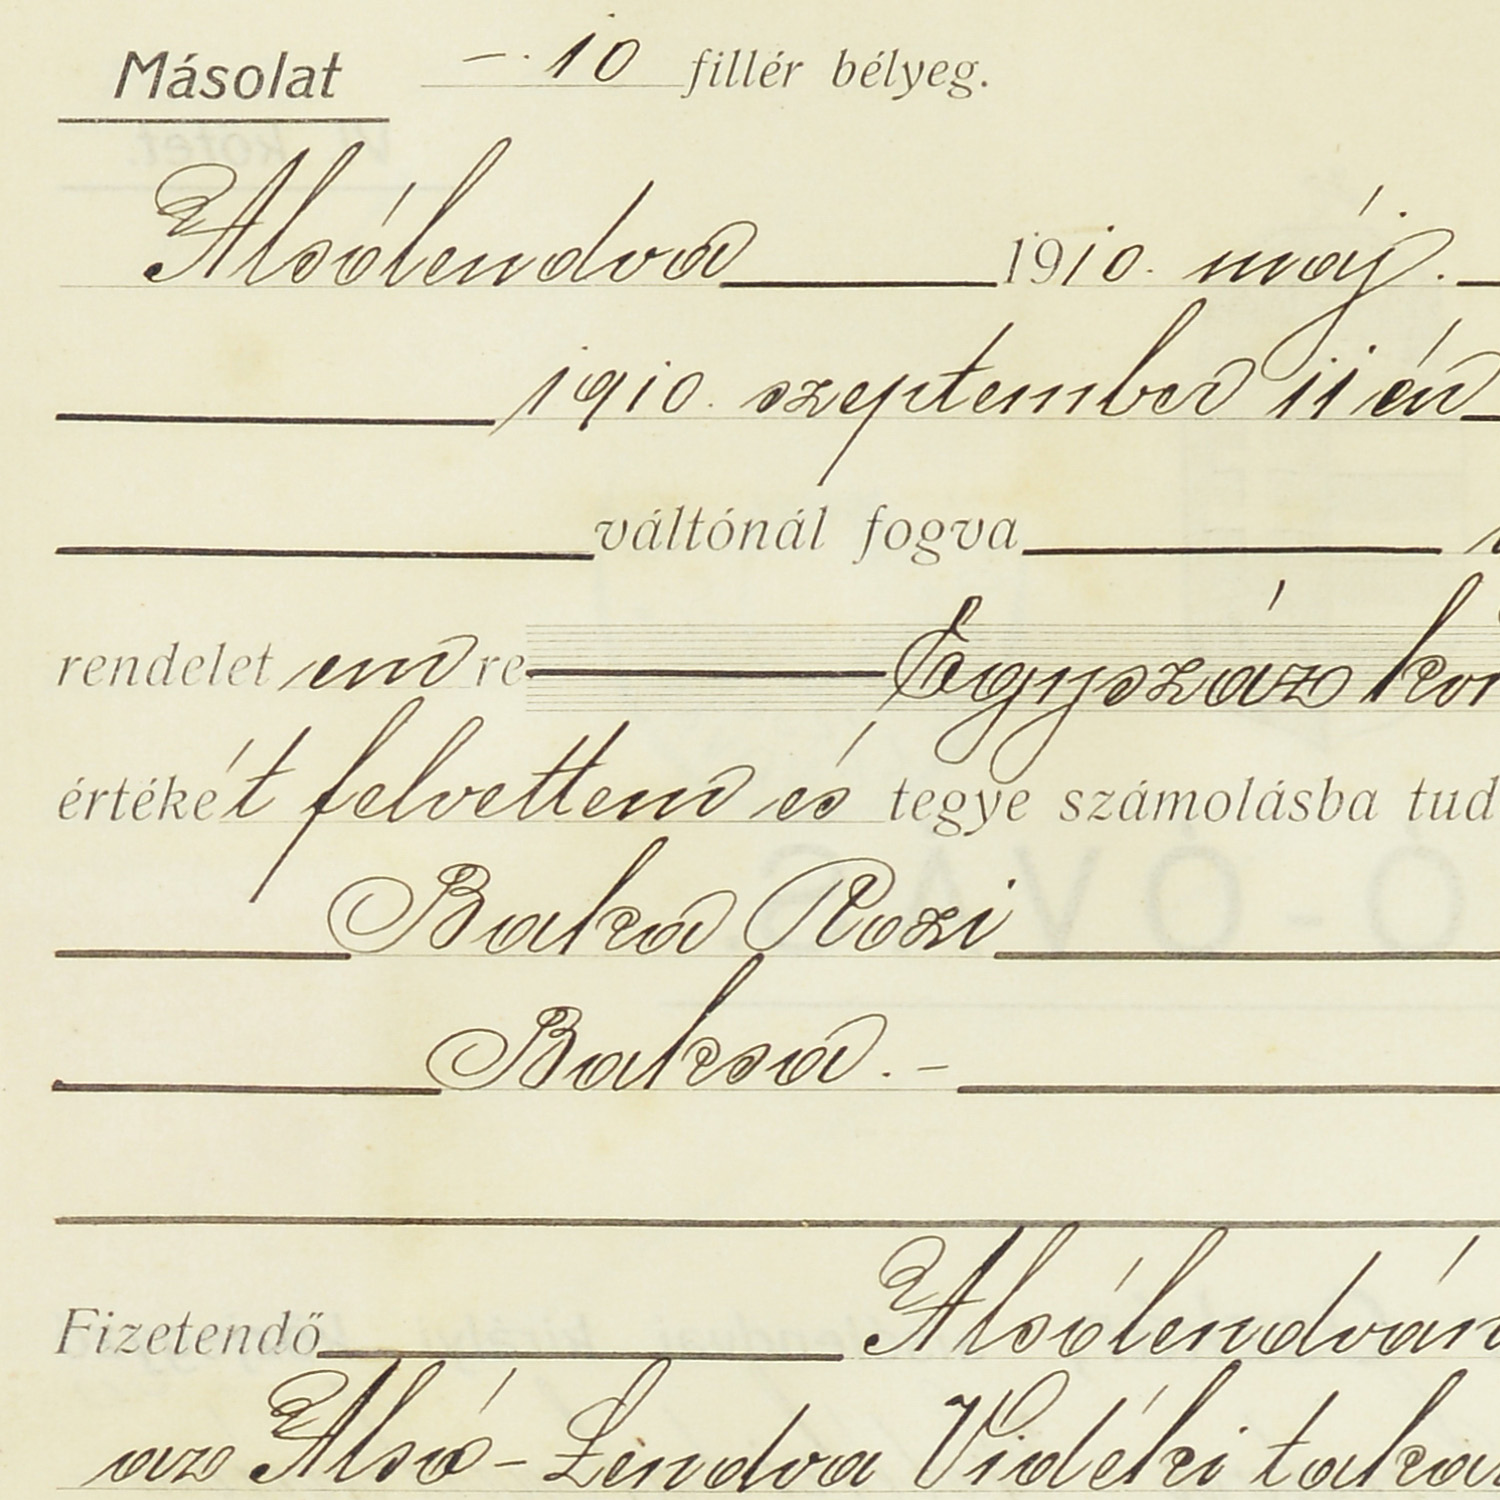 Másolat –. 10 fillér bélyeg.
Alsólendva 1910. máj.
1910. szeptember 11 én
váltónál fogva
rendelet em re Egyszáz kor
értékét felvettem és tegye számolásba tud
Baka Rozi
Baksa. –
Fizetendő Alsólendván
az Alsó-Lendva Vidéki taka